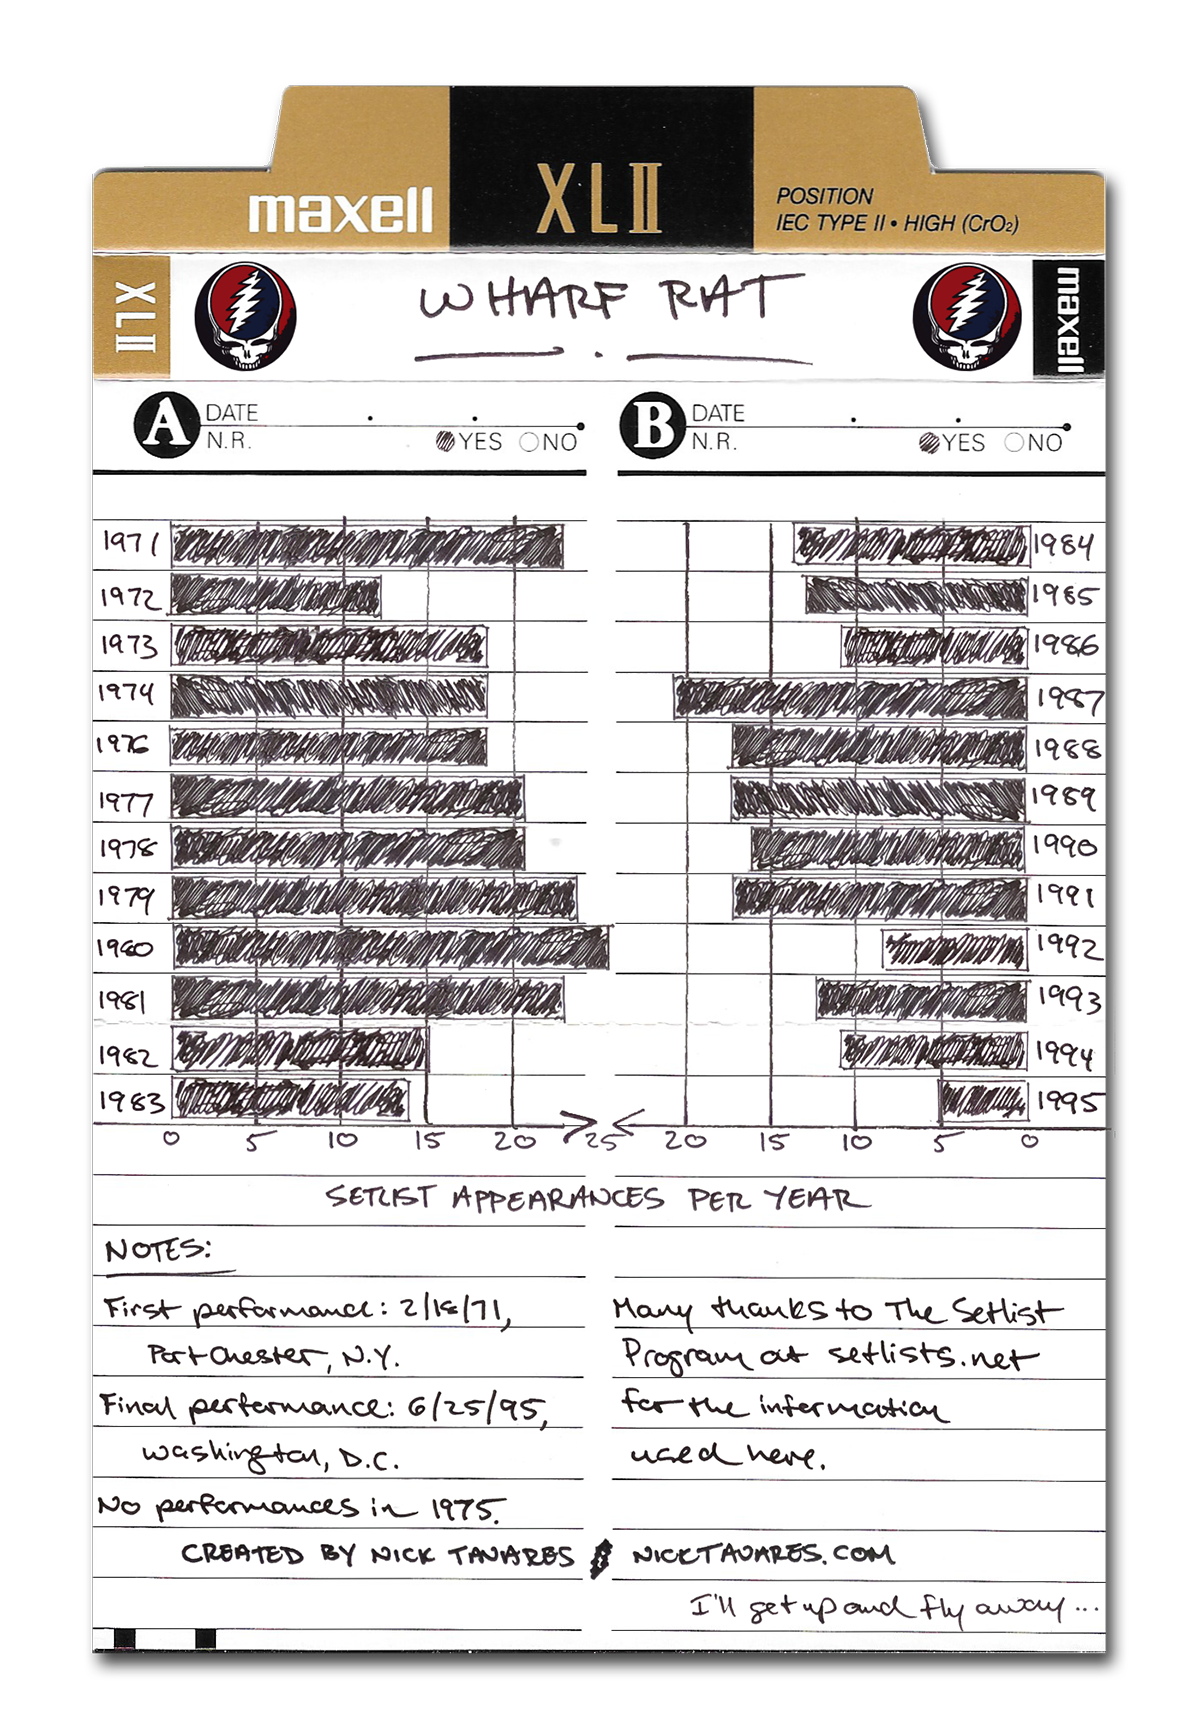 maxell
XLII
POSITION
IEC TYPE II • HIGH (CrO2)
XLII
WHARF RAT
maxell
A DATE
N.R. YES NO
B DATE
N.R. YES NO
1971
1972
1973
1974
1976
1977
1978
1979
1980
1981
1982
1983
1984
1985
1986
1987
1988
1989
1990
1991
1992
1993
1994
1995
0 5 10 15 20 25 20 15 10 5 0
SETLIST APPEARANCES PER YEAR
NOTES:
First performance: 2/18/71,
Port Chester, N.Y.
Final performance: 6/25/95,
Washington, D.C.
No performances in 1975.
Many thanks to The Setlist
Program at setlists.net
for the information
used here.
CREATED BY NICK TAVARES
NICKTAVARES.COM
I'll get up and fly away...